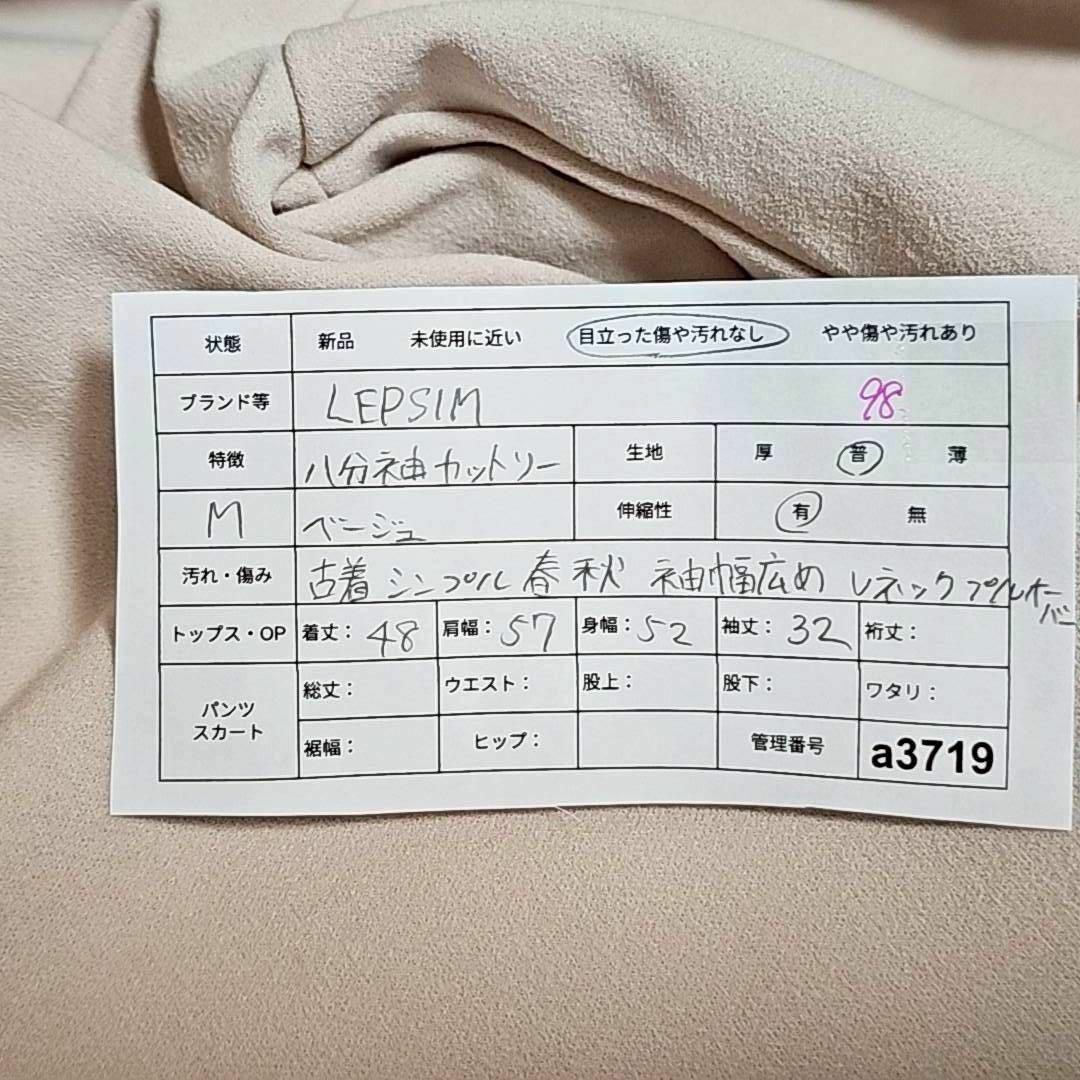 状態 新品 未使用に近い 目立った傷や汚れなし やや傷や汚れあり
ブランド等 LEPSIM 98
特徴 八分袖カットソー 生地 厚 普 薄
M ベージュ 伸縮性 有 無
汚れ・傷み 古着 シンプル 春秋 袖幅広め Vネックプルオーバー
トップス・OP 着丈: 48 肩幅: 57 身幅: 52 袖丈: 32 裄丈:
パンツ スカート 総丈: ウエスト: 股上: 股下: ワタリ:
裾幅: ヒップ: 管理番号 a3719